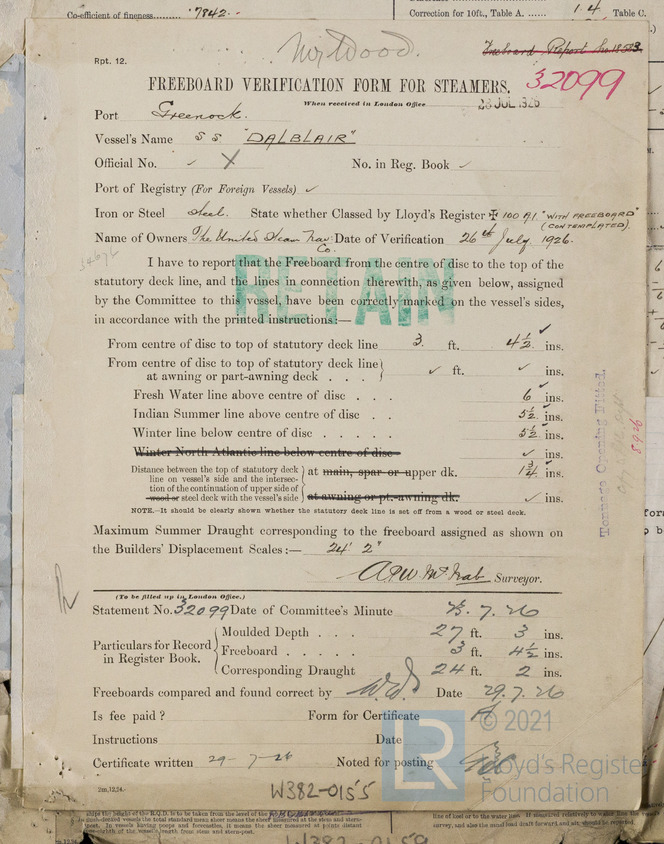 Co-efficient of fineness......... .7842.
Correction for 10ft., Table A. ...... 1.4 Table C.
Mr Wood.
Freeboard Report No. 18503
Rpt. 12.
FREEBOARD VERIFICATION FORM FOR STEAMERS. 32099
When received in London Office 28 JUL 1926
Port Greenock.
Vessel's Name S S "DALBLAIR"
Official No. ✓ X No. in Reg. Book ✓
Port of Registry (For Foreign Vessels) ✓
Iron or Steel Steel. State whether Classed by Lloyd's Register ✠ 100 A1. "WITH FREEBOARD" (CONTEMPLATED)
Name of Owners The United Steam Nav: Co. Date of Verification 26th July 1926.
I have to report that the Freeboard from the centre of disc to the top of the
statutory deck line, and the lines in connection therewith, as given below, assigned
by the Committee to this vessel, have been correctly marked on the vessel's sides,
in accordance with the printed instructions:—
RETAIN
From centre of disc to top of statutory deck line 3. ft. 4½ ✓ ins.
From centre of disc to top of statutory deck line
at awning or part-awning deck . . . ✓ ft. ✓ ins.
Fresh Water line above centre of disc . . . 6 ✓ ins.
Indian Summer line above centre of disc . . 5½ ✓ ins.
Winter line below centre of disc . . . . . 5½ ✓ ins.
Winter North Atlantic line below centre of disc ✓ ins.
Distance between the top of statutory deck
line on vessel's side and the intersec-
tion of the continuation of upper side of
wood or steel deck with the vessel's side
at main, spar or upper dk. 1¾ ✓ ins.
at awning or pt.-awning dk. ✓ ins.
NOTE.—It should be clearly shown whether the statutory deck line is set off from a wood or steel deck.
Tonnage Opening Fitted.
Maximum Summer Draught corresponding to the freeboard assigned as shown on
the Builders' Displacement Scales:— 24' 2"
A.P.W. McNab Surveyor.
(To be filled up in London Office.)
Statement No. 32099 Date of Committee's Minute 23.7.26
Particulars for Record
in Register Book.
Moulded Depth . . . 27 ft. 3 ins.
Freeboard . . . . . 3 ft. 4½ ins.
Corresponding Draught 24 ft. 2 ins.
Freeboards compared and found correct by Date 29.7.26
Is fee paid? Form for Certificate A
Instructions Date
Certificate written 29-7-26 Noted for posting
2m,12,24.
W382-0155
LR
© 2021
Lloyd's Register
Foundation
W382-0159